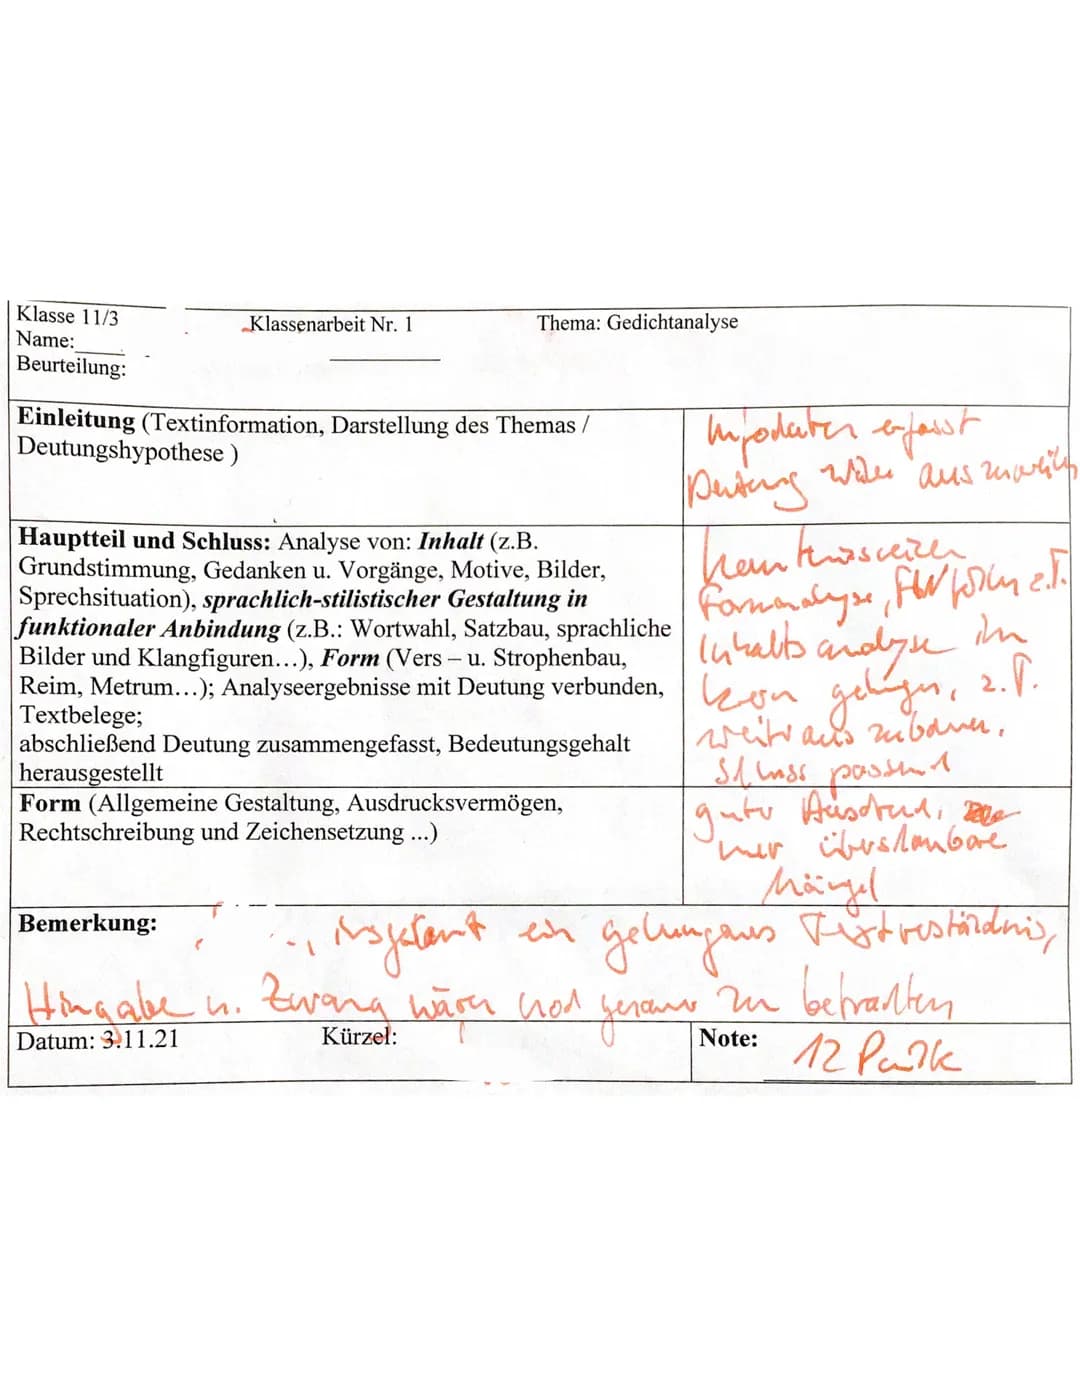 Klasse 11/3
Klassenarbeit Nr. 1
Thema: Gedichtanalyse
Name:
Beurteilung:
Einleitung (Textinformation, Darstellung des Themas /
Deutungshypothese )
Infodaten erfasst
Deutung wäre
Hauptteil und Schluss: Analyse von: Inhalt (z.B.
Grundstimmung, Gedanken u. Vorgänge, Motive, Bilder,
Sprechsituation), sprachlich-stilistischer Gestaltung in
funktionaler Anbindung (z.B.: Wortwahl, Satzbau, sprachliche
Bilder und Klangfiguren…), Form (Vers – u. Strophenbau,
Reim, Metrum…); Analyseergebnisse mit Deutung verbunden,
Textbelege;
abschließend Deutung zusammengefasst, Bedeutungsgehalt
herausgestellt
Formanalyse, z.T.
Inhaltsanalyse im
Kern gelungen, z.T.
weiter auszubauen.
Schluss passend
Form (Allgemeine Gestaltung, Ausdrucksvermögen,
Rechtschreibung und Zeichensetzung ...)
guter Ausdruck,
nur überschaubare
Mängel
Bemerkung:
insgesamt ein gelungenes Textverständnis,
Hingabe u. Zwang wären noch genauer zu betrachten
Datum: 3.11.21
Kürzel:
Note:
12 Punkte